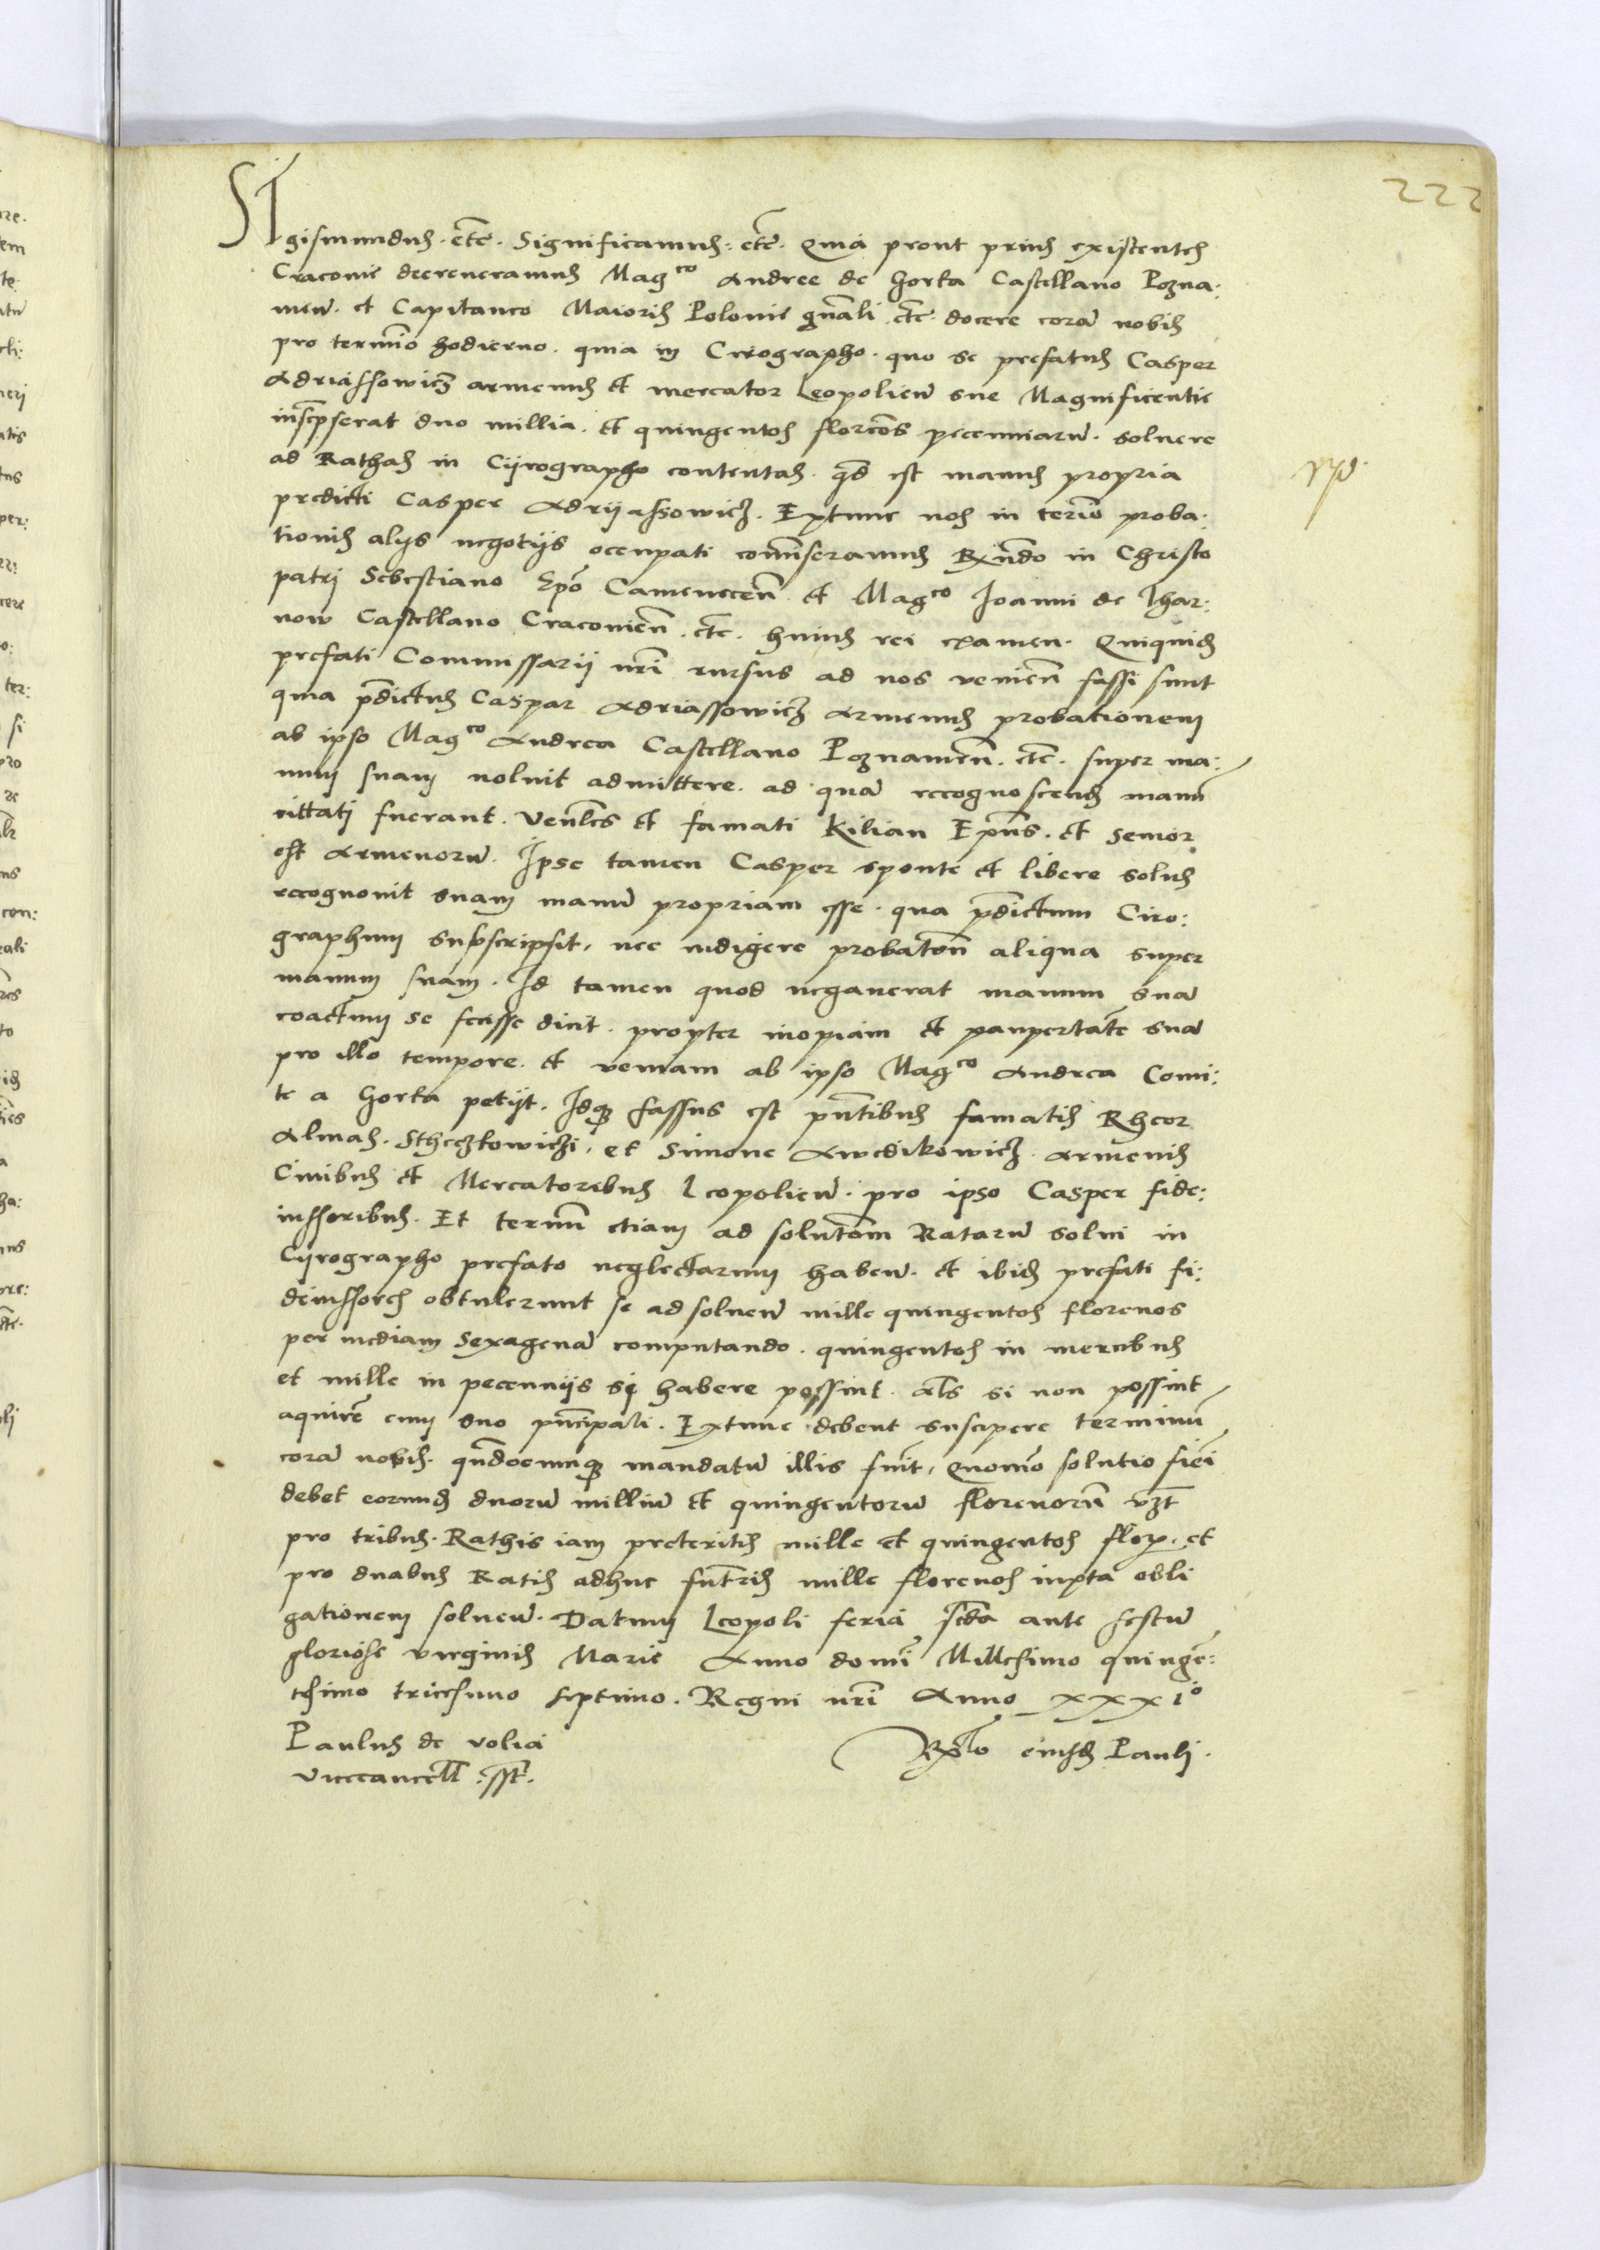 222
SIgismundus. etc. Significamus. etc. Quia prout prius existentes
Cracovie decreveramus Magco Andree de Gorka Castellano Pozna:
nien. et Capitaneo Maioris Polonie gnali etc. docere cora nobis
pro termio hodierno. quia in Cirographo. quo se prefatus Casper
Adriassowicz armenus et mercator Leopolien sue Magnificentie
inscpserat duo millia et quingentos florenos pecuniaru. solvere
ad Rathas in Cyrographo contentas. qd est manus propria
predicti Casper Adryassowicz. Extunc nos in termio proba:
tionis alys negotys occupati comiseramus Rndo in Christo
patri Sebestiano Epo Camenecen et Magco Joanni de Thar:
now Castellano Cracovien. etc. huius rei examen. Quiquid
prefati Commissarii nri rursus ad nos venien fassi sunt
quia pdictus Caspar Adriassowicz Armenus probationem
ab ipso Magco Andrea Castellano Poznanien. etc. super ma:
num suam noluit admittere. ad qua recognoscend manu
cittati fuerant. Venles et famati Kilian Epus. et Senior
est Armenoru. Ipse tamen Casper sponte et libere solus
recognovit suam manu propriam esse. qua pdictum Ciro:
graphum subscripsit, nec indigere probaton aliqua super
manum suam. Id tamen quod negaverat manum sua
coactum se fecisse dicit. propter inopiam et paupertate sua
pro illo tempore. et veniam ab ipso Magco Andrea Comi:
te a Gorka petyt. Idq fassus est pntibus famatis Rhcor
Almas. Stheczkowiczi, et Simone Awedikowicz. Armenis
Civibus et Mercatoribus Leopolien. pro ipso Casper fide:
iussoribus. Et termi etiam ad solutom Rataru solvi in
Cyrographo prefato neglectarum haben. et ibid prefati fi:
deiussores obtulerunt se ad solven mille quingentos florenos
per mediam Sexagena computando. quingentos in mercibus
et mille in pecunys si habere possint. als si non possint
aquire cum suo pncipali. Extunc debent suscipere terminu
cora nobis. qndocumq mandatu illis fuit, quomo solutio fieri
debet eorund duoru milliu et quingentoru florenoru vzt
pro tribus. Rathis iam preteritis mille et quingentos flor. et
pro duabus Ratis adhuc futuris mille florenos iuxta obli
gationem solven. Datum Leopoli feria scda ante festu
gloriose virginis Marie Anno domi Millesimo quinge:
tesimo tricesimo septimo. Regni nri Anno XXXIo
Paulus de volia
vicecancell. sst.
Rlo eiusd Pauli.